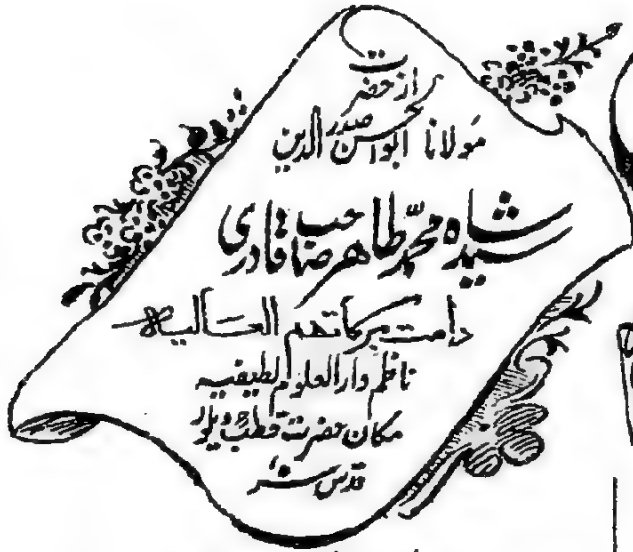 از حضرت
مولانا ابوالحسن صدر الدین
سید شاہ محمد طاہر صاحب قادری
دامت برکاتہم العالیہ
ناظم دارالعلوم لطیفیہ
مکان حضرت قطب ویلور
قدس سرہٗ